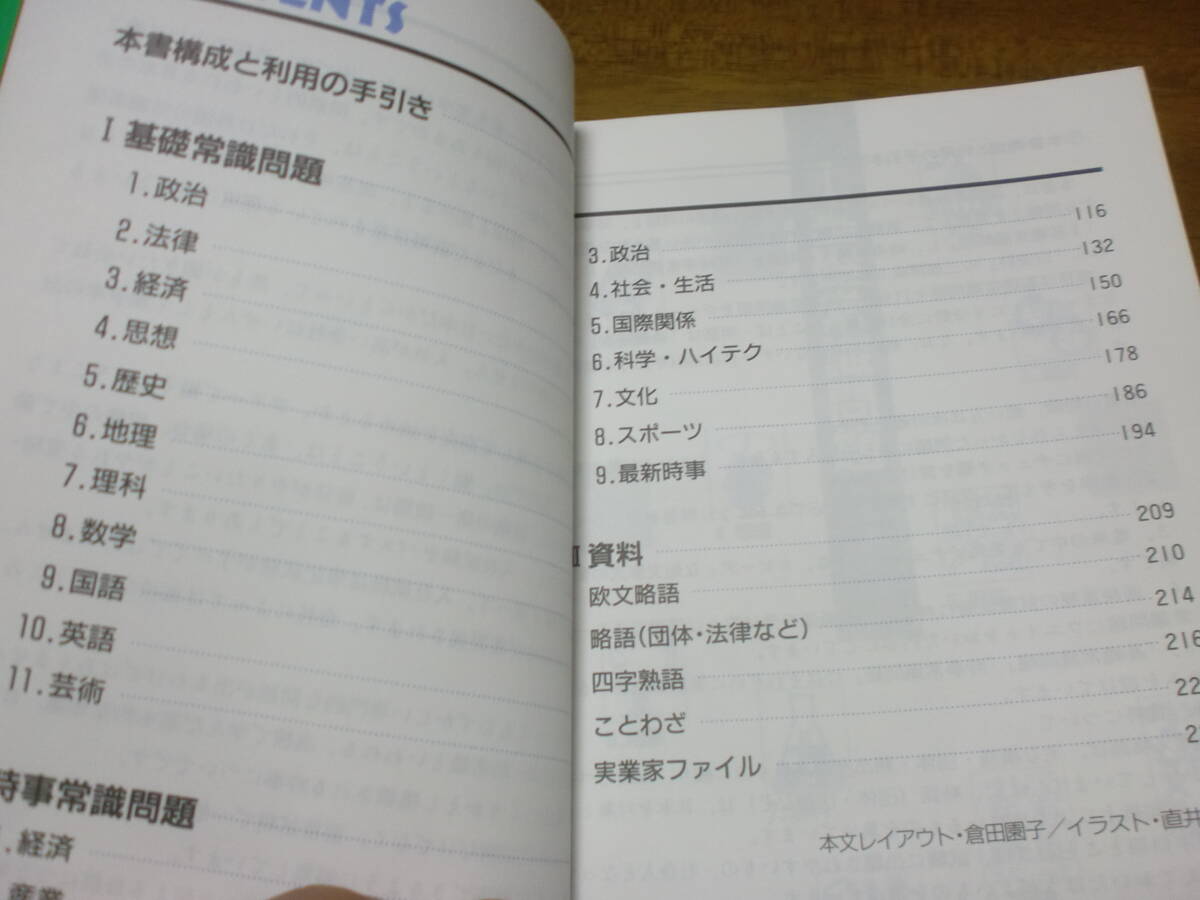 ENTS
本書構成と利用の手引き
I 基礎常識問題
1.政治
2.法律
3.経済
4.思想
5.歴史
6.地理
7.理科
8.数学
9.国語
10.英語
11.芸術
時事常識問題
1.経済
産業
3.政治 116
4.社会・生活 132
5.国際関係 150
6.科学・ハイテク 166
7.文化 178
8.スポーツ 186
9.最新時事 194
資料 209
欧文略語 210
略語(団体・法律など) 214
四字熟語 216
ことわざ 22
実業家ファイル 2
本文レイアウト・倉田園子/イラスト・直井